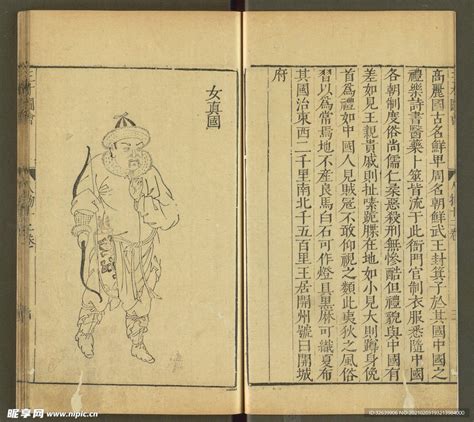 高麗國古名鮮卑周名朝鮮武王封箕子於其國中國之
禮樂詩書醫藥卜筮皆流于此衙門官制衣服悉隨中國
各朝制度俗尚儒仁柔惡殺刑無慘酷但禮貌與中國有
差如見王親貴戚則扯嗉跪膝在地如小見大則蹲身俛
首為禮如中國人見賊寇不敢仰視之類此夷狄之風俗
習以為常焉地不產良馬白石可作燈具黑麻可織夏布
其國治東西二千里南北千五百里王居開州號曰開城
府
女真國
三才圖會
人物十二卷
昵享网 www.nipic.cn